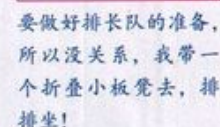 要做好排长队的准备，
所以没关系，我带一
个折叠小板凳去，排
排坐！